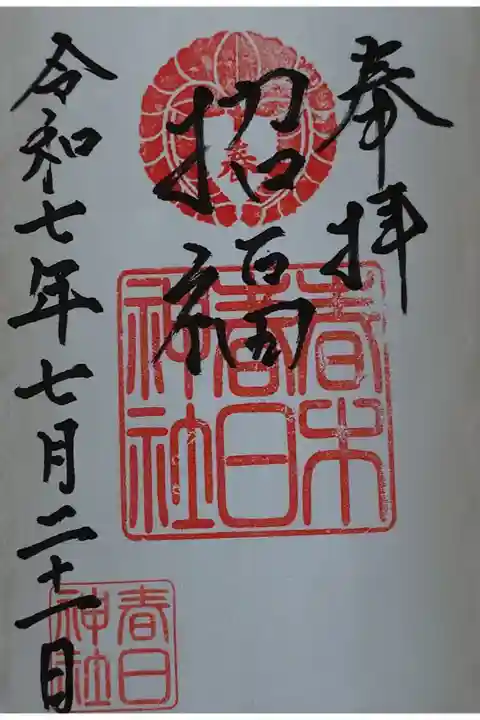 奉拝
招福
春
春木
春日
神社
令和七年七月二十一日
春日
神社